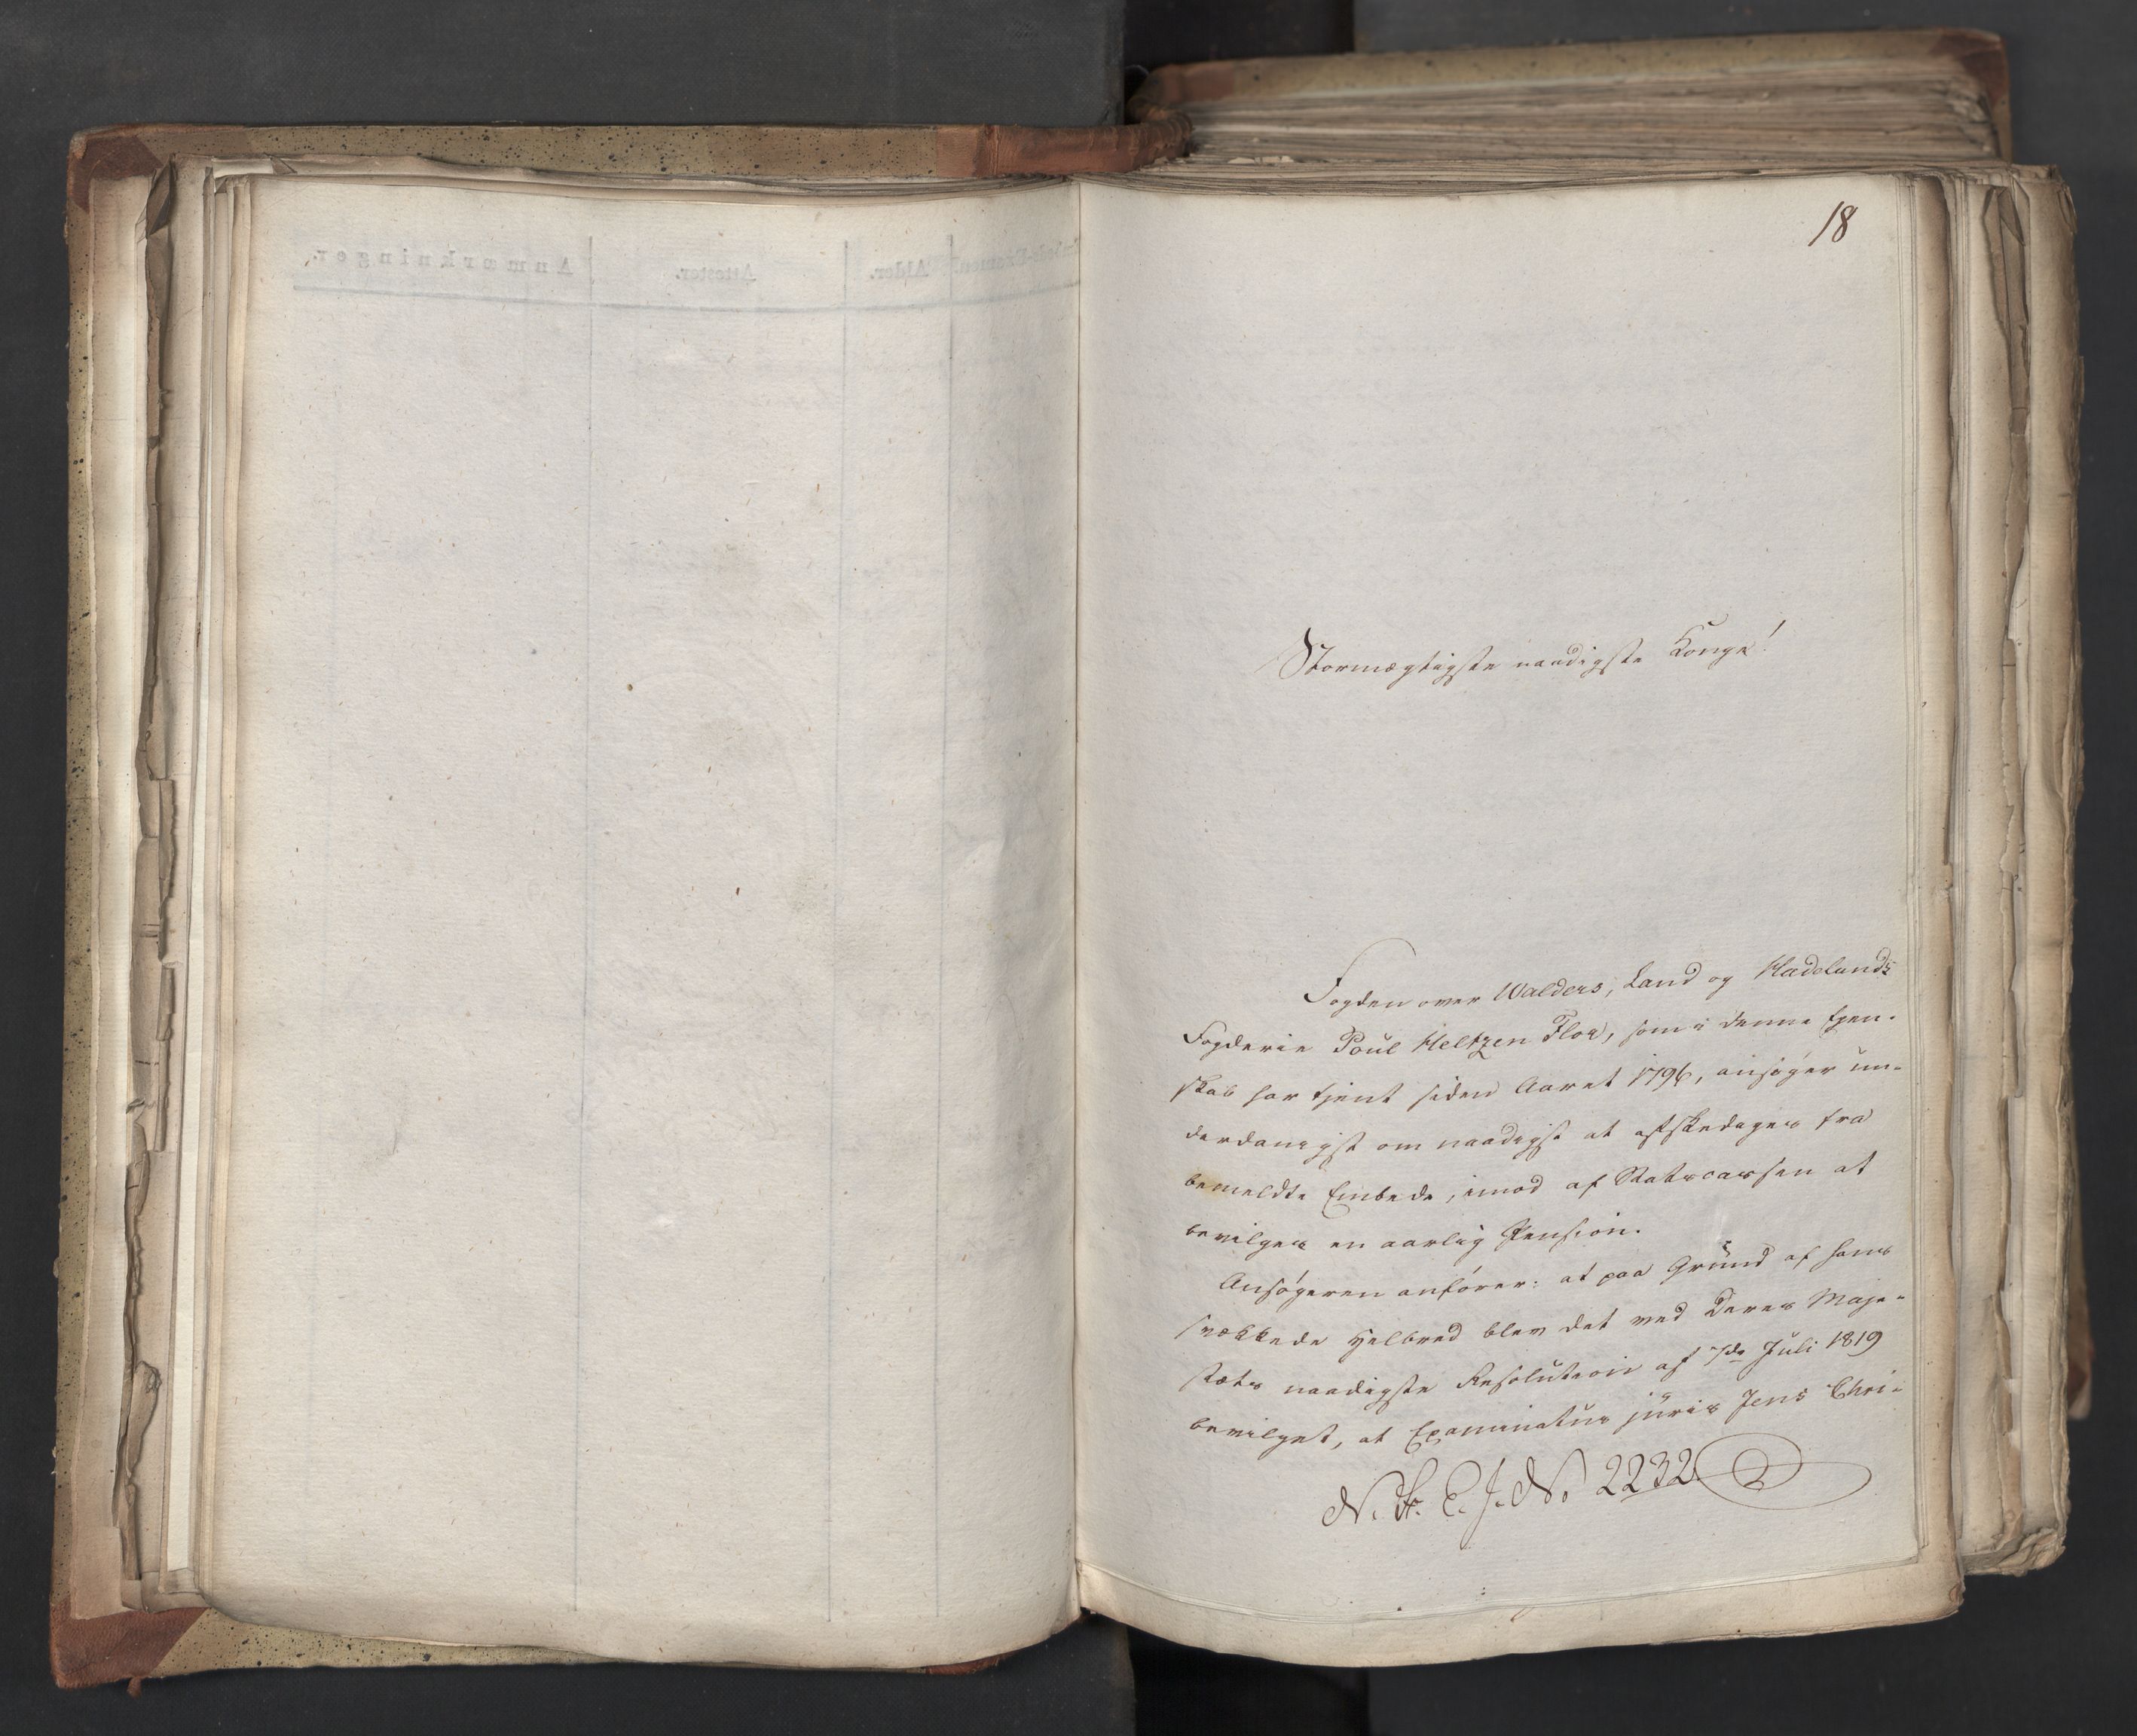 18
Stormægtigste naadigste Konge!
Fogden over Walders, Land og Hadelands
Fogderie Poul Heltzen Flor, som i denne Egen-
skab har tjent siden Aaret 1796, ansøger un-
derdanigst om naadigst at afskediges fra
bemeldte Embede, imod af Statscassen at
bevilges en aarlig Pension.
Ansøgeren anfører: at paa Grund af hans
svækkede Helbred blev det ved Deres Maje-
stæts naadigste Resolution af 7de Juli 1819
bevilget, at Examinatus juris Jens Chri-
N. 2232
Anmærkninger.
Attester.
Alder.